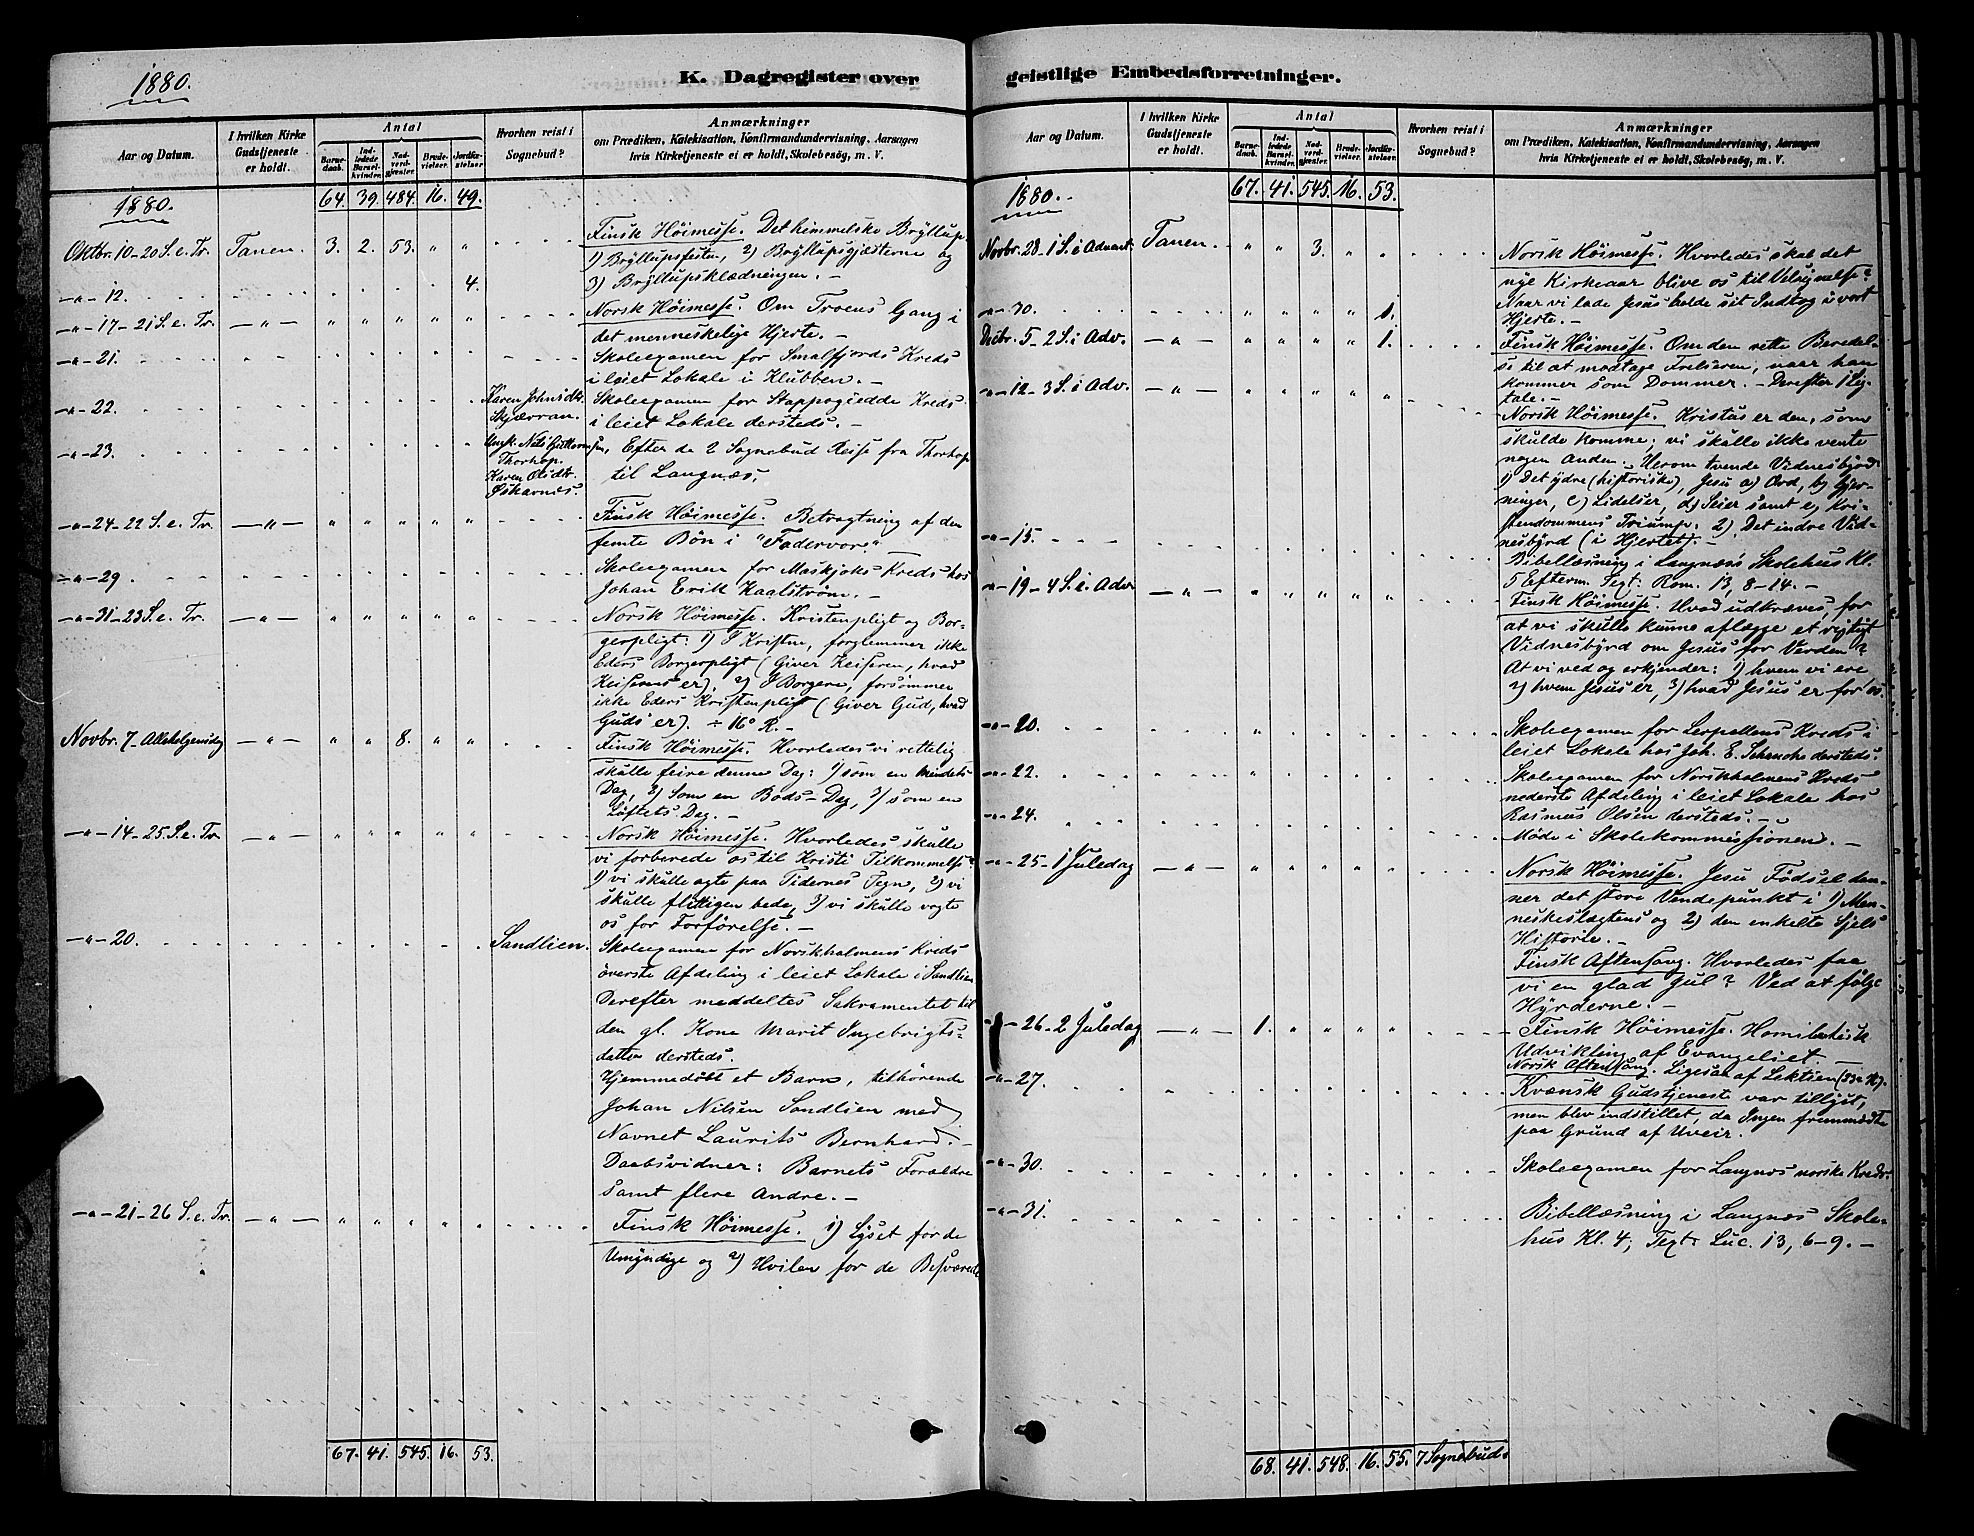 1880.
K. Dagregister over
Aar og Datum.
I hvilken Kirke
Gudstjeneste
er holdt.
Antal
Barne-
daab.
Ind-
ledede
Barsel-
kvinder.
Nad-
verd-
gjæster.
Brude-
vielser.
Jordfæ-
stelser.
Hvorhen reist i
Sognebud?
Anmærkninger
om Prædiken, Katekisation, Konfirmandundervisning, Aarsagen
hvis Kirketjeneste ei er holdt, Skolebesög, m. V.
64. 39. 484. 16. 49.
1880.
Oktbr. 10-20 S. e. Tr. Tanen. 3. 2. 53. " "
Finsk Höimesse. Det himmelske Bryllup.
1) Bryllupsfesten, 2) Bryllupsgjæsterne og
3) Bryllupsklædningen. -
-"- 12. 4.
-"- 17-21 S. e. Tr. -"- " " " " "
Norsk Höimesse. Om Troens Gang i
det menneskelige Hjerte. -
-"- 21.
Skoleexamen for Smalfjords Kreds
i leiet Lokale i Klubben. -
-"- 22. Karen Johnsdtr.
Skjærran.
Skoleexamen for Stappogiedde Kreds
i leiet Lokale dersteds. -
-"- 23. Ungk. Nils
Thorhop.
Karen Olsdtr.
Efter de 2 Sognebud Reise fra Thorhop
til Langnæs.
-"- 24-22 S. e. Tr. -"- " " " " "
Finsk Höimesse. Betragtning af den
femte Bön i "Fadervor". -
-"- 29
Skoleexamen for Maskjoks Kreds hos
Johan Erik Kaalström. -
-"- 31-23 S. e. Tr. -"- " " " " "
Norsk Höimesse. Kristenpligt og Bor-
gerpligt: 1) I Kristne, forglemmer ikke
Eders Borgerpligt (Giver Keiseren, hvad
Keiserens er), 2) I Borgere, forsömmer
ikke Eders Kristenpligt (Giver Gud, hvad
Guds er). ÷ 16° R. -
Novbr. 7 - Allehelgensdag -"- " " 8. " "
Finsk Höimesse. Hvorledes vi rettelig
skulle feire denne Dag: 1) som en Mindets
Dag, 2) Som en Bods-Dag, 3) som en
Löftets Dag. -
-"- 14-25. S. e. Tr. -"- " " " " "
Norsk Höimesse. Hvorledes skulle
vi forberede os til Kristi Tilkommelse?
1) vi skulle agte paa Tidernes Tegn, 2) vi
skulle flittigen bede, 3) vi skulle vogte
os for Forförelse. -
-"- 20. Sandlien.
Skoleexamen for Norskholmens Kreds
överste Afdeling i leiet Lokale i Sandlien
Derefter meddeltes Sakramentet til
den gl. Kone Marit Ingebrigts-
datter dersteds.
Hjemmedöbt et Barn, tilhörende
Johan Nilsen Sandlien med
Navnet Laurits Bernhard. -
Daabsvidner: Barnets Forældre
samt flere Andre. -
-"- 21-26 S. e. Tr. -"- " " " " "
Finsk Höimesse. 1) Lyset for de
Umyndige og 2) Hvilen for de Besværede
67. 41. 545. 16. 53.
geistlige Embedsforretninger.
Aar og Datum.
I hvilken Kirke
Gudstjeneste
er holdt.
Antal
Barne-
daab.
Ind-
ledede
Barsel-
kvinder.
Nad-
verd-
gjæster.
Brude-
vielser.
Jordfæ-
stelser.
Hvorhen reist i
Sognebud?
Anmærkninger
om Prædiken, Katekisation, Konfirmandundervisning, Aarsagen
hvis Kirketjeneste ei er holdt, Skolebesög, m. V.
67. 41. 545. 16. 53.
1880.
Novbr. 28-1 S. i Advent. Tanen. " " 3. " "
Norsk Höimesse. Hvorledes skal det
nye Kirkeaar blive os til Velsignelse?
Naar vi lade Jesus holde sit Indtog i vort
Hjerte. -
-"- 30. " " " " 1.
Decbr. 5-2 S. i Adv. -"- " " " " 1.
Finsk Höimesse. Om den rette Beredel-
se til at modtage Frelseren, naar han
kommer som Dommer. - Derefter 1 Lig-
tale. -
-"- 12-3 S. i Adv. -"- " " " " "
Norsk Höimesse. Kristus er den, som
skulde komme; vi skulle ikke vente
nogen Anden. Herom tvende Vidnesbyrd
1) Det ydre (historiske), Jesu a) Ord, b) Gjer-
ninger, c) Lidelser, d) Seier samt e) Kri-
stendommens Triumf. 2) Det indre Vid-
nesbyrd (i Hjertet). -
-"- 15.
Bibellæsning i Langnæs Skolehus Kl.
5 Efterm. Text: Rom. 13, 8-14. -
-"- 19-4 S. i. Adv. -"- " " " " "
Finsk Höimesse. Hvad udkræves, for
at vi skulle kunne aflægge et rigtigt
Vidnesbyrd om Jesus for Verden?
At vi ved og erkjender: 1) hvem vi ere
2) hvem Jesus er, 3) hvad Jesus er for os.
-"- 20.
Skoleexamen for Lerpollens Kreds i
leiet Lokale hos Joh. E. Schanche dersteds.
-"- 22.
Skoleexamen for Norskholmens Kreds
nederste Afdeling i leiet Lokale hos
Rasmus Olsen dersteds. -
-"- 24.
Möde i Skolekommissionen. -
-"- 25-1 Juledag -"- " " " " "
Norsk Höimesse. Jesu Födsel dan-
ner det store Vendepunkt i 1) Men-
neskeslægtens og 2) den enkelte Sjæls
Historie. -
Finsk Aftensang. Hvorledes faa
vi en glad Jul? Ved at fölge
Hyrderne. -
-"- 26-2 Juledag -"- 1. " " " "
Finsk Höimesse. Homiletisk
Udvikling af Evangeliet. -
Norsk Aftensang. Ligesaa af Lektien
-"- 27.
Kvænsk Gudstjeneste var tillyst,
men blev indstillet, da Ingen fremmödte
paa Grund af Uveir.
-"- 30.
Skoleexamen for Langnæs norske Kreds.
-"- 31.
Bibellæsning i Langnæs Skole-
hus Kl. 4; Text: Luc. 13, 6-9. -
68. 41. 548. 16. 55. 7 Sognebud.